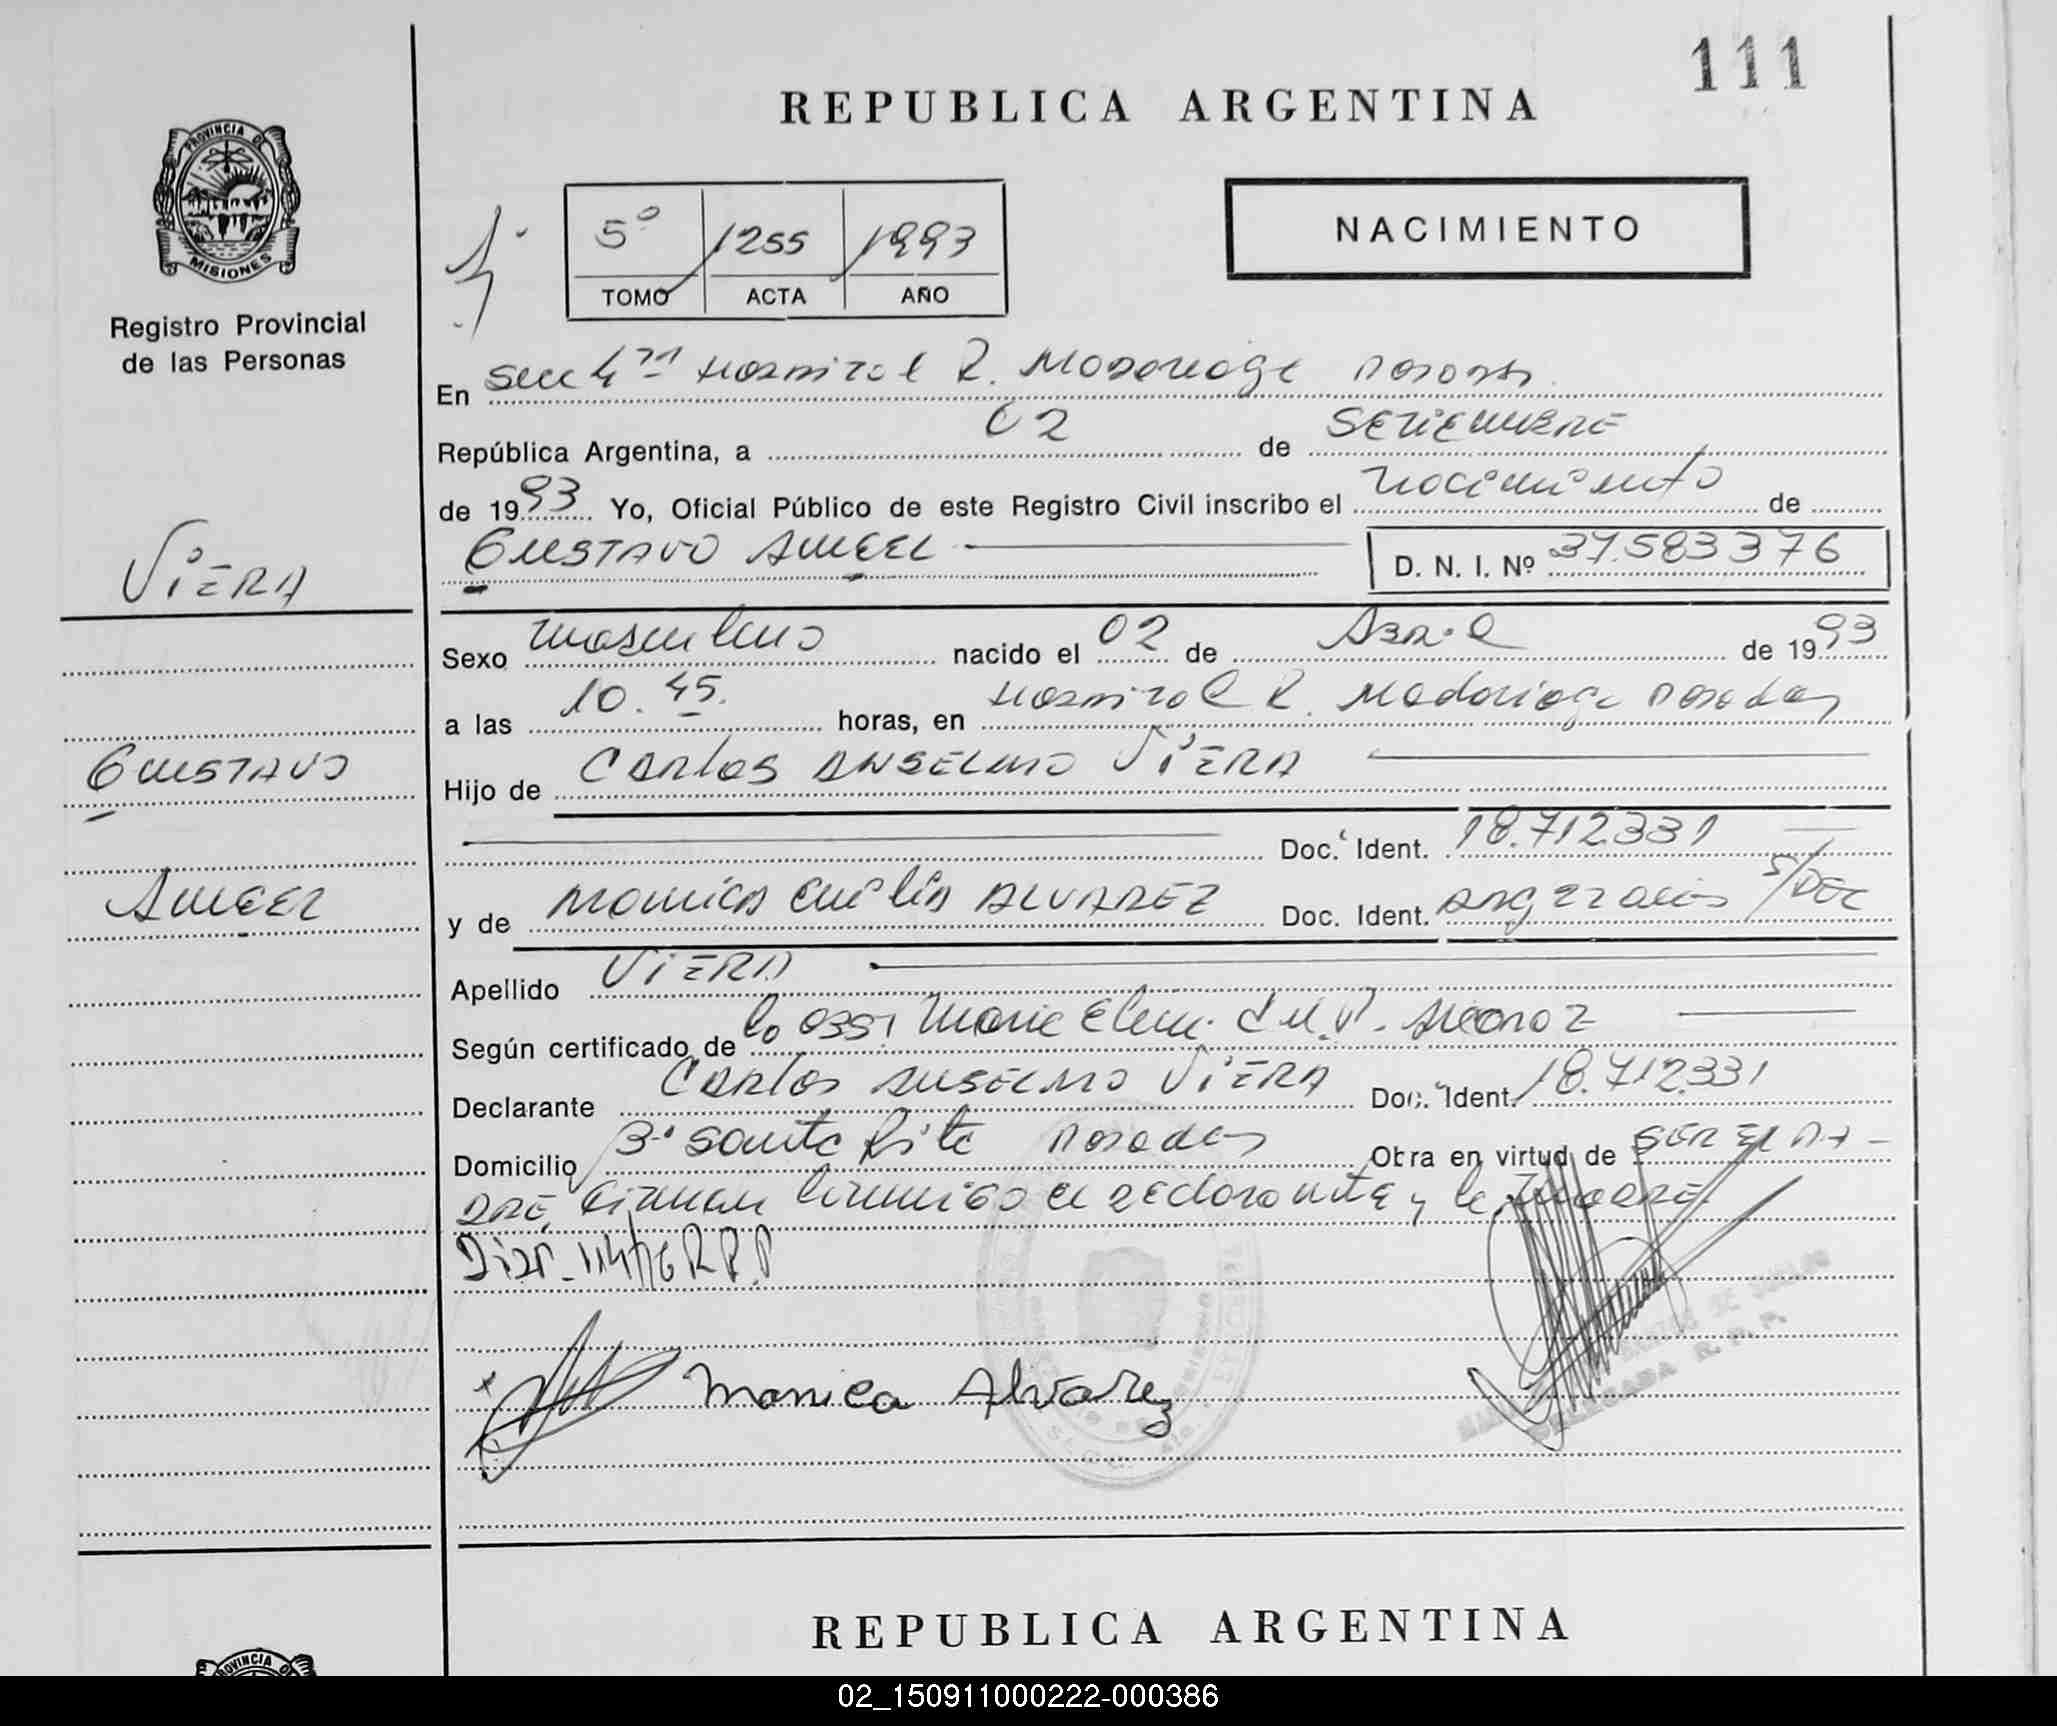 111
REPUBLICA ARGENTINA
PROVINCIA DE
MISIONES
Registro Provincial
de las Personas
NACIMIENTO
5º 1255 1993
TOMO ACTA AÑO
En Secc 4ta Hospital R. Madariaga Posadas
República Argentina, a 02 de SETIEMBRE
de 1993 Yo, Oficial Público de este Registro Civil inscribo el nacimiento de
VIERA
GUSTAVO ANGEL D. N. I. Nº 37.583376
Sexo masculino nacido el 02 de Abril de 1993
a las 10.45. horas, en Hospital R. Madariaga Posadas
GUSTAVO
Hijo de Carlos ANSELMO VIERA
Doc. Ident. 18.712331
ANGEL
y de MONICA EMILIA ALVAREZ Doc. Ident. S/DEC
Apellido VIERA
Según certificado de la Obst Maria Elena del V.
Declarante Carlos ANSELMO VIERA Doc. Ident. 18.712331
Domicilio Bº Santa Rita Posadas Obra en virtud de SER EL PA-
DRE, Firman conmigo el declarante y la MADRE
Disp. 114/76 R.P.P
Monica Alvarez
DELEGADA R.P.P.
REPUBLICA ARGENTINA
PROVINCIA DE
02_150911000222-000386